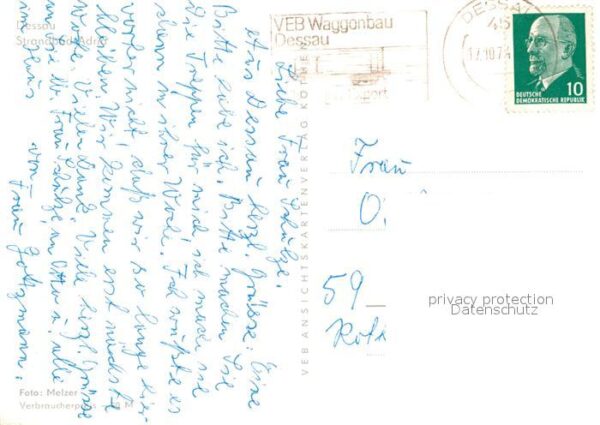 Dessau
Strandbad Adria
Liebe Frau Schulze,
Aus Dessau herzl. Grüsse. Eine
Bitte habe ich. Bitte machen Sie
die Treppe für mich, ich mache sie
dann in Ihrer Woche. Ich wußte es
vorher nicht, daß wir so lange hier
bleiben. Wir kommen erst nächste
Woche. Vielen Dank. Viele herzl. Grüsse
an Frau Schulze, an Otto u. alle
von
Frau
VEB ANSICHTSKARTENVERLAG KÖTHEN
Foto: Melzer
Verbraucherpreis M
VEB Waggonbau
Dessau
DESSAU
45
17.10.74
10
DEUTSCHE
DEMOKRATISCHE REPUBLIK
Frau
O.
59
privacy protection
Datenschutz